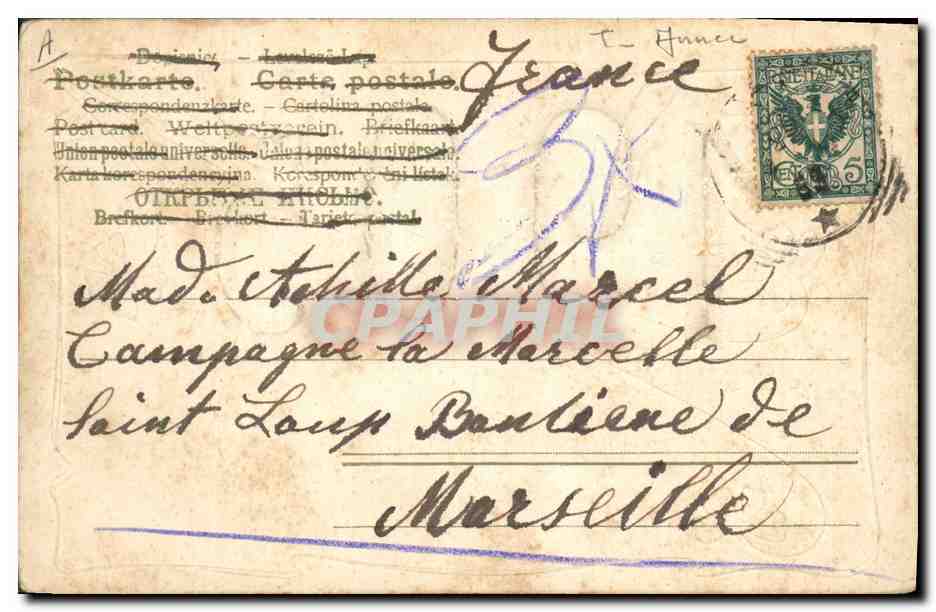 A
Dopisnica – Levelező-Lap
Postkarte. Carte postale.
Correspondenzkarte. – Cartolina postale
Post card. Weltpostverein. Briefkaart
Union postale universelle. postale universale.
Karta korespondencyjna. Korespondenční lístek.
ОТКРЫТОЕ ПИСЬМО.
Brefkort. – Brevkort – Tarjeta postal.
France
POSTE ITALIANE
CENT 5
Mad. Achille Marcel
CPAPHIL
Campagne la Marcelle
Saint Loup Banlieue de
Marseille